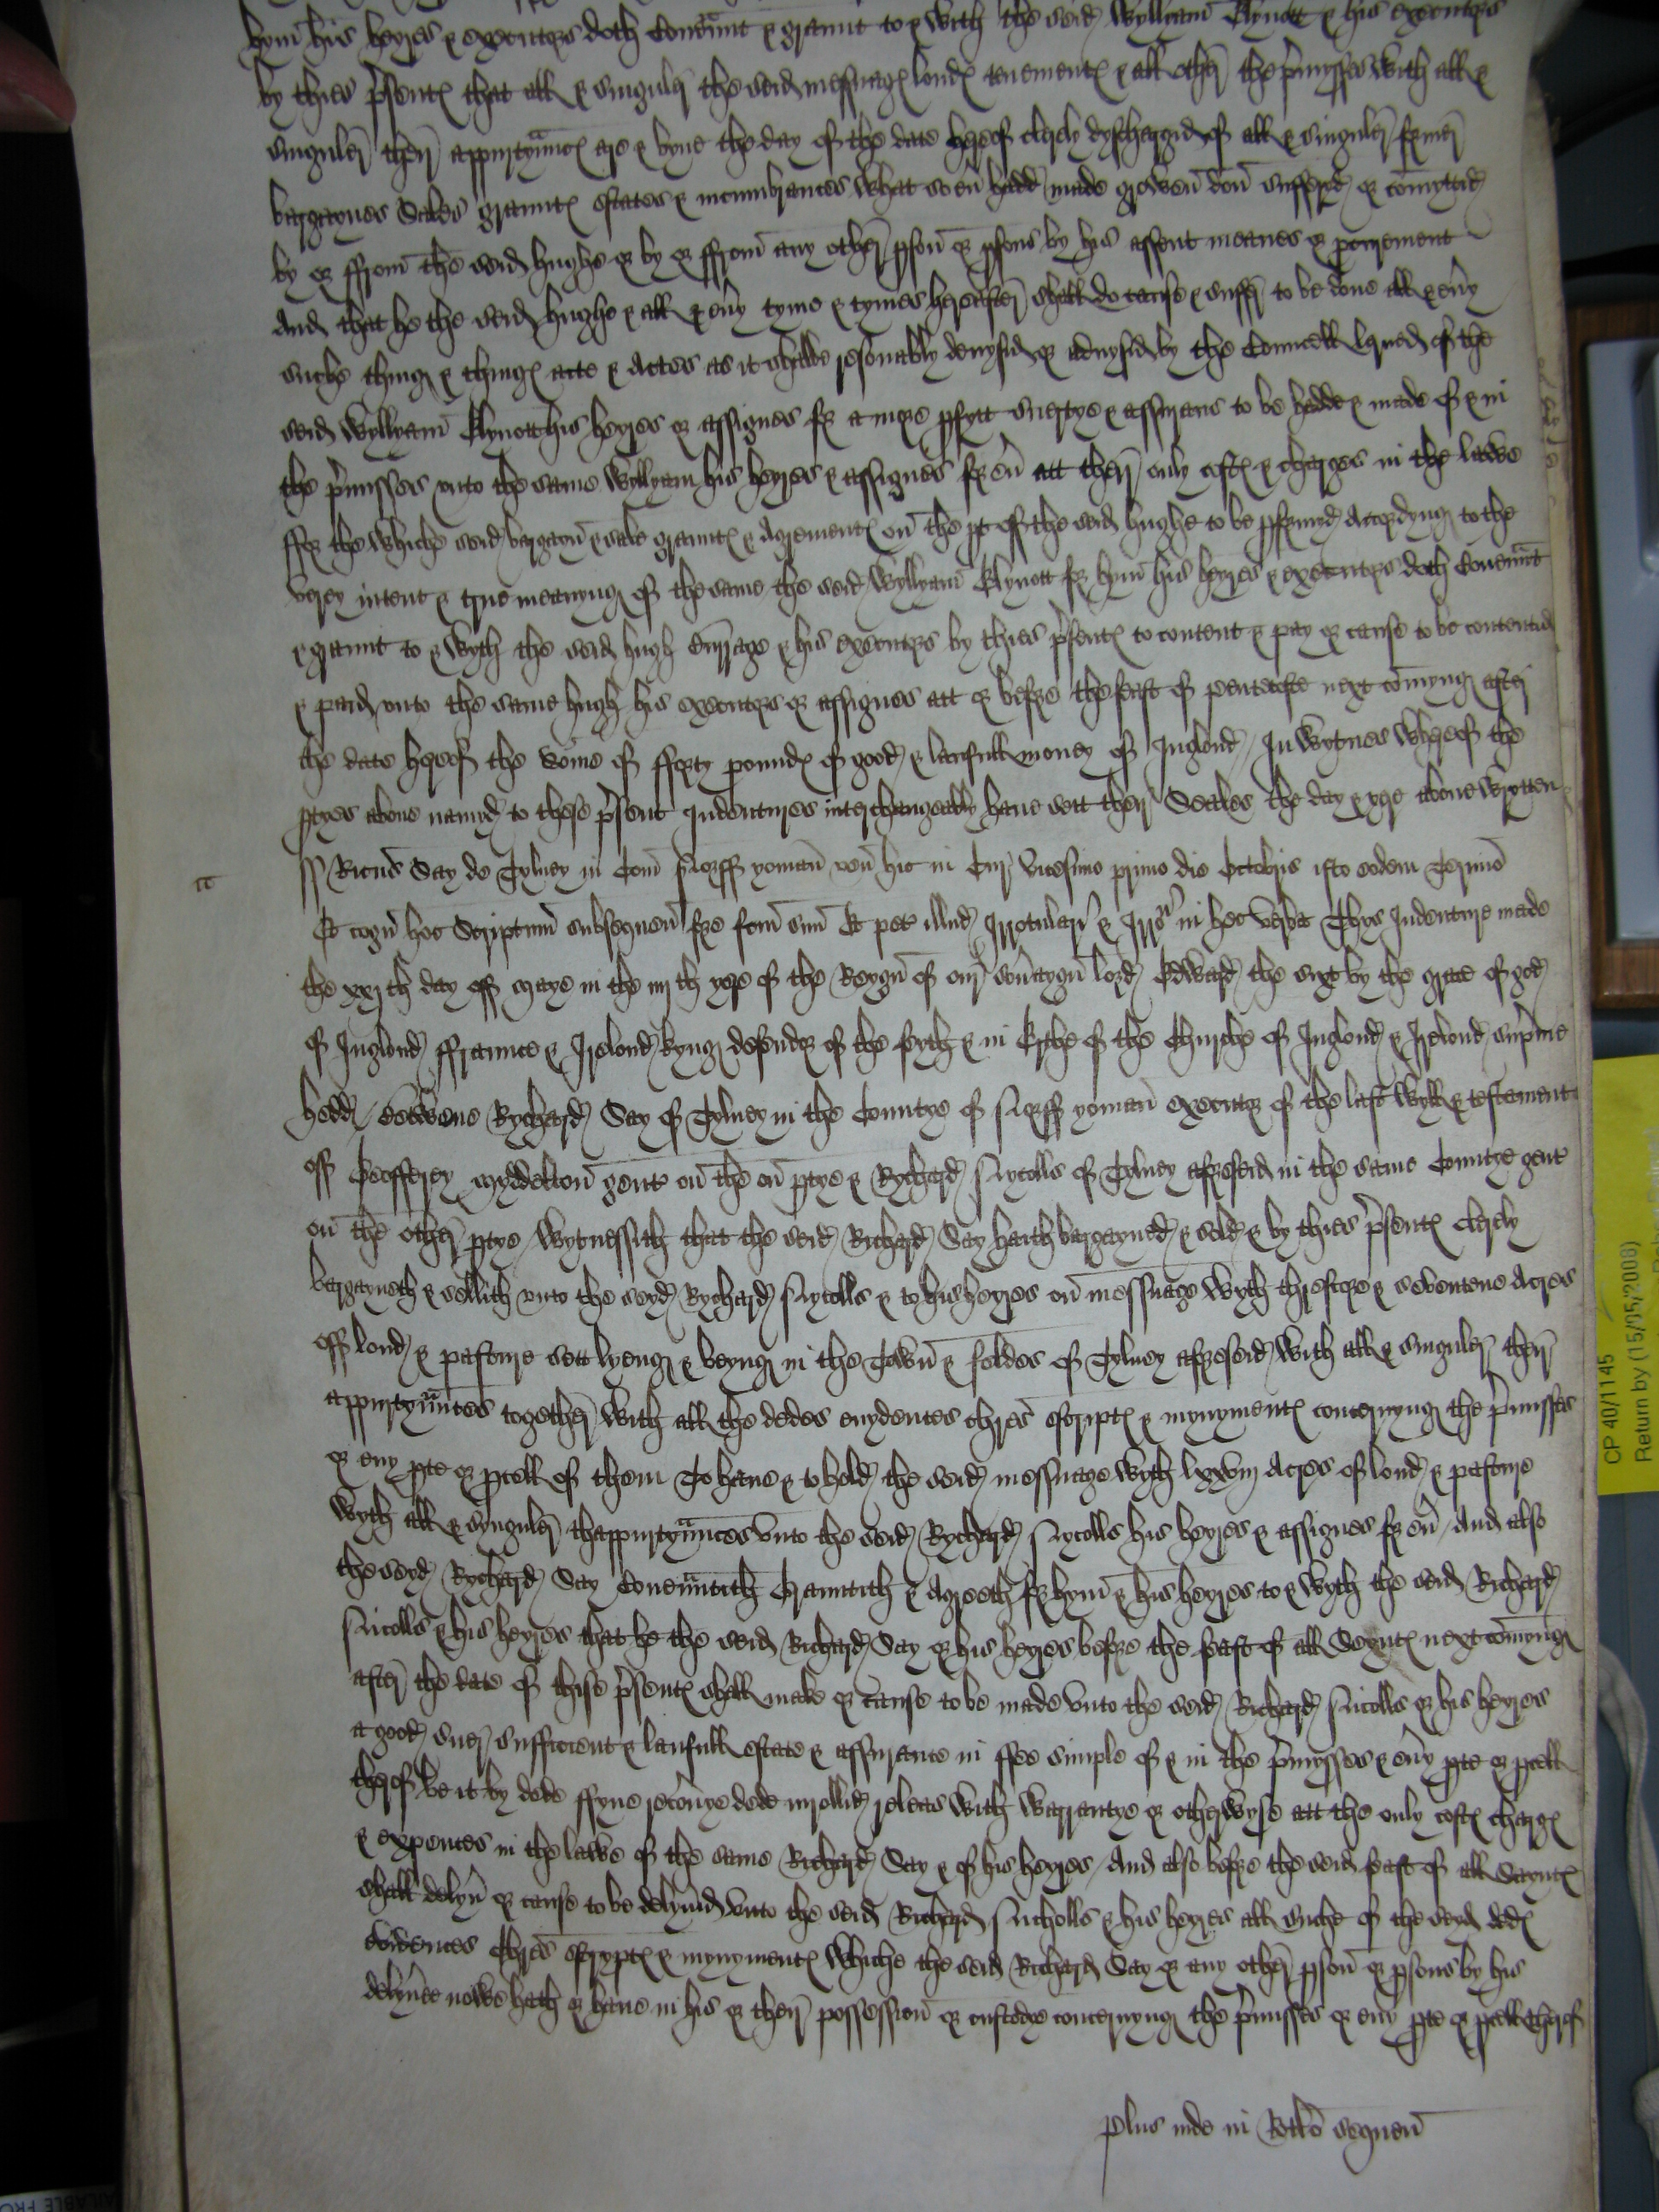 hym his heyres & executors doth Covennt & graunt to & with the seid Wyllyam Elyott & his executors
by thies psentes that all & singuler the seid mesuages londes tenementes & all other the pmysses with all &
singuler ther appurtynnces are & bene the day of the date hereof clerely dyscharged of all & singuler former
bargaynes Sales grauntes estates & incumbrances what so eu hadd made growen don suffered or comytted
by or ffrom the seid hughe or by or ffrom any other pson or psons by his assent meanes or procurement
And that he the seid hughe & all & euy tyme & tymes hereafter shall do cause & suffer to be done all & euy
suche thing & thinges acte & Actes as it shalbe resonably devysid or advysid by the Councell lerned of the
seid Wyllyam Elyott his heyres or assignes for a more pfytt suertye & assurans to be hadde & made of & in
the pmisses unto the same Wyllyam his heyres & assignes for eu att ther only costes & charges in the lawe
ffor the whiche seid bargayn & sale grauntes & Agrementes on the pt of the seid hughe to be pformyd Accordyng to the
verey intent & true meanyng of the same the seid Wyllyam Elyott for hym his heyres & executors doth Covennt
& graunt to & wyth the seid hugh & his executors by thies psentes to content & pay or cause to be contentid
& paid unto the same hugh his executors or assignes att or before the feast of pentecoste next comyng after
the date hereof the some of fforty poundes of good & laufull money of Inglond In wytnes whereof the
ptyes above namyd to these psent Indentures interchangeably have sett ther Seales the day & yere above wrytten
ss Ricus Say de Tylney in Com Norff yoman ven hic in Cur vicesimo primo die Octobris isto eodem Termino
Et cogn hoc Scriptum subsequen fore fcm suu Et pet illud Irrotulari & Irro in hec verba Thys Indenture made
the xxj th day off Maye in the iiij th yere of the Reygn of our souaygn lord Edward the sixt by the grace of god
of Inglond ffraunce & Irelond kyng defendor of the feyth & in Erthe of the Churche of Inglond & Irelond supme
hedd betwene Rychard Say of Tylney in the Countye of Norff yoman executor of the last wyll & testament
off Geofferey Myddelton gent on the on ptye & Rychard Nycolls of Tylney aforeseid in the same Countye gent
on the other ptye Wytnessith that the seid Richard Say haith bargayned & sold & by thies psentes clerely
bargayneth & sellith unto the seyd Rychard Nycolls & to his heyres on messuage wyth threscore & seventene Acres
off lond & pasture sett lyeng & beyng in the Town & feldes of Tylney aforeseid with all & singuler ther
appurtynnces together with all the dedes evydences chres escriptes & mynymentes concernyng the pmisses
or eny pte or pcell of them To have & to hold the seid messuage wyth lxxvij Acres of lond & pasture
wyth all & synguler thappurtynnces unto the seid Rychard Nycolls his heyres & assignes for eu And also
the seyd Rychard Say Covenntith Grauntith & Agreeth for hym & his heyres to & wyth the seid Richard
Nicolls & his heyres that he the seid Richard Say or his heyres before the feast of all Seyntes next comyng
after the date of thise psentes shall make or cause to be made unto the seid Richard Nicolls or his heyres
a good suer sufficient & laufull estate & assurance in ffee simple of & in the pmysses & euy pte or pcell
therof be it by dede ffyne recouye dede inrollid releas with warrantye or otherwyse att the only costes charges
& expences in the lawe of the same Richard Say & of his heyres And also before the seid feast of all Sayntes
shall delyu or cause to be delyuid unto the seid Richard Nicholls & his heyres all suche of the seyd dedes
evidences Chres escryptes & mynymentes whiche the seid Richard Say or any other pson or psons by his
delyuee nowe hath or have in his or ther possession or custodye concernyng the pmisses or eny pte or pcell therof
Plus inde in Rotlo sequen
CP 40/1145
Return by (15/05/2008)